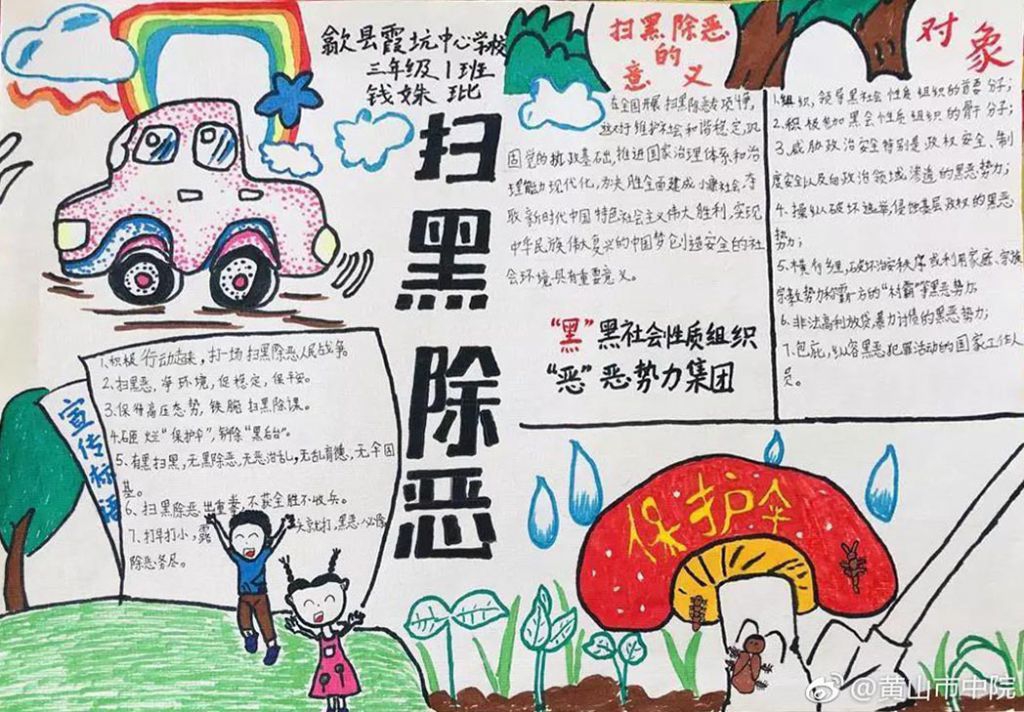 歙县霞坑中心学校
三年级1班
钱姝玭
扫黑除恶
扫黑除恶
的
意义
在全国开展扫黑除恶专项斗争,
这对于维护社会和谐稳定,巩
固党的执政基础,推进国家治理体系和治
理能力现代化,为决胜全面建成小康社会,夺
取新时代中国特色社会主义伟大胜利,实现
中华民族伟大复兴的中国梦创造安全的社
会环境具有重要意义。
“黑”黑社会性质组织
“恶”恶势力集团
对象
1.组织,领导黑社会性质组织的首要分子;
2.积极参加黑会性质组织的骨干分子;
3.威胁政治安全特别是政权安全、制
度安全以及向政治领域渗透的黑恶势力;
4.操纵破坏选举,侵蚀基层政权的黑恶
势力;
5.横行乡里,破坏治安秩序或利用家庭、宗族
宗教势力称霸一方的“村霸”等黑恶势力;
6.非法高利放贷、暴力讨债的黑恶势力;
7.包庇,纵容黑恶犯罪活动的国家工作人
员。
宣传标语
1.积极行动起来,打一场扫黑除恶人民战争。
2.扫黑恶,净环境,促稳定,保平安。
3.保持高压态势,铁腕扫黑除
4.砸烂“保护伞”,铲除“黑后台”。
5.有黑扫黑,无黑除恶,无恶治乱,无乱育德,无伞固
基。
6、扫黑除恶出重拳,不获全胜不收兵。
7、打早打小,露头就打,黑恶必除
除恶务尽。
保护伞
@黄山市中院